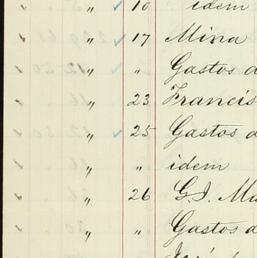 " 10 idem
" 17 Mina
" " Gastos d
" 23 Francis
" 25 Gastos d
" " idem
" 26 G. I. Mu
" " Gastos d